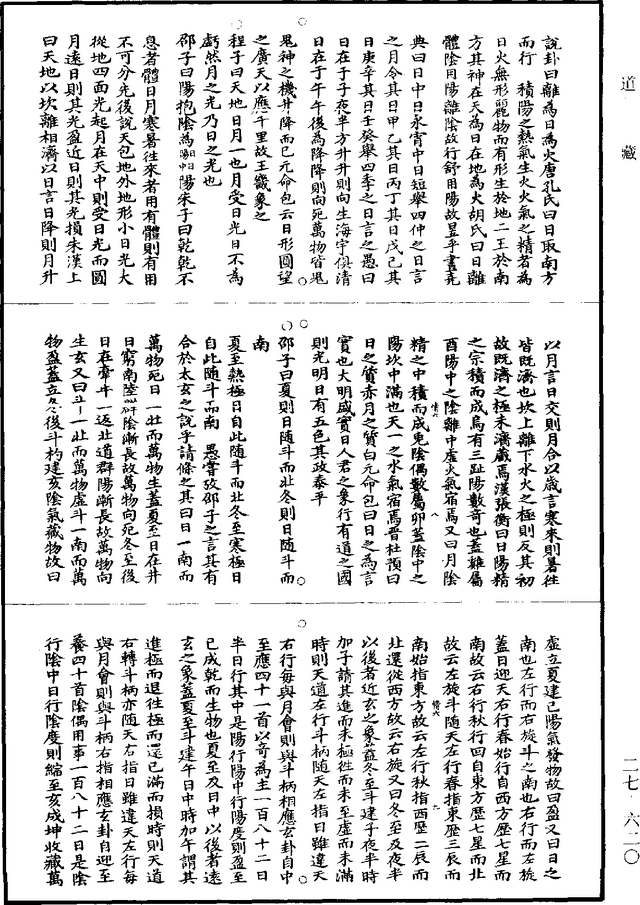 道藏
說卦曰離為日為火唐孔氏曰日取南方
而行　積陽之熱氣生火火氣之精者為
日火無形麗物而有形生於地二王於南
方其神在天為日在地為火胡氏曰日離
體陰用陽離陰故行舒用陽故昱乎晝堯
典曰日中日永宵中日短舉四仲之日言
之月令其日甲乙其日丙丁其日戊己其
日庚辛其日壬癸舉四季之日言之愚曰
日在于子夜半方升升則向生海宇俱清
日在于午午後為降降則向死萬物皆
鬼神之機升降而已元命包云日形圓望
之廣尺以應千里故王
程子曰天地日月一也月受日光日不為
虧然月之光乃日之光也
邵子曰陽抱陰為陽朱子曰乾乾不
息者體日月寒暑往來者用有體則有用
不可分先後說天包地外地形小日光大
從地四面光起月在天中則受日光而圓
月遠日則其光盈近日則其光損朱漢上
曰天地以坎離相濟以日言日降則月升
以月言日交則月合以歲言寒來則暑往
皆既濟也坎上離下水火之極則反其初
故既濟之極未濟藏焉漢張衡曰日陽精
之宗積而成烏有三趾陽數奇也蓋雖屬
酉陽中之陰離中虛火氣宿焉又曰月陰
精之中積而成兔陰偶數屬卯蓋陰中之
陽坎中滿也天一之水氣宿焉晉杜預曰
日之質赤月之質白元命包曰日之為言
實也大明盛實日人君之象行有道之國
則光明日有五色其政泰平
邵子曰夏則日隨斗而北冬則日隨斗而
南
夏至熱極日自此隨斗而北冬至寒極日
自此隨斗而南　愚嘗攷邵子之言其有
合於太玄之說乎請條之其曰日一南而
萬物死日一北而萬物生蓋夏至日在井
日窮南陸陰漸長故萬物向死冬至後
日在牽牛一返北道群陽漸長故萬物向
生玄又曰斗一北而萬物虛斗一南而萬
物盈蓋立冬後斗杓建亥陰氣藏物故曰
虛立夏建巳陽氣發物故曰盈又曰日之
南也左行而右旋斗之南也右行而左旋
蓋日迎天右行春始行自西方歷七星而
南故云右行秋行四自東方歷七星而北
故云左旋斗隨天左行春指東歷三辰而
南始指東方故云左行秋指西歷二辰而
北還從西方故云右旋又曰冬至及夜半
以後者近玄之象蓋冬至斗建子夜半時
加子請其進而未極往而未至虛而未滿
時則天道左行斗柄隨天左指日雖違天
右行每與月會則與斗柄相應玄卦自中
至應四十一首以奇為主一百八十二日
半日行其中是陽行陽中行陽度則盈至
巳成乾而生物也夏至及日中以後者遠
玄之象蓋夏至斗建午日中時加午謂其
進極而退往極而還已滿而損時則天道
右轉斗柄亦隨天右指日雖違天左行每
與月會則與斗柄右指相應玄卦自迎至
養四十首陰偶用事一百八十二日是陰
行陰中日行陰度則縮至亥成坤收藏萬
二七　六二〇